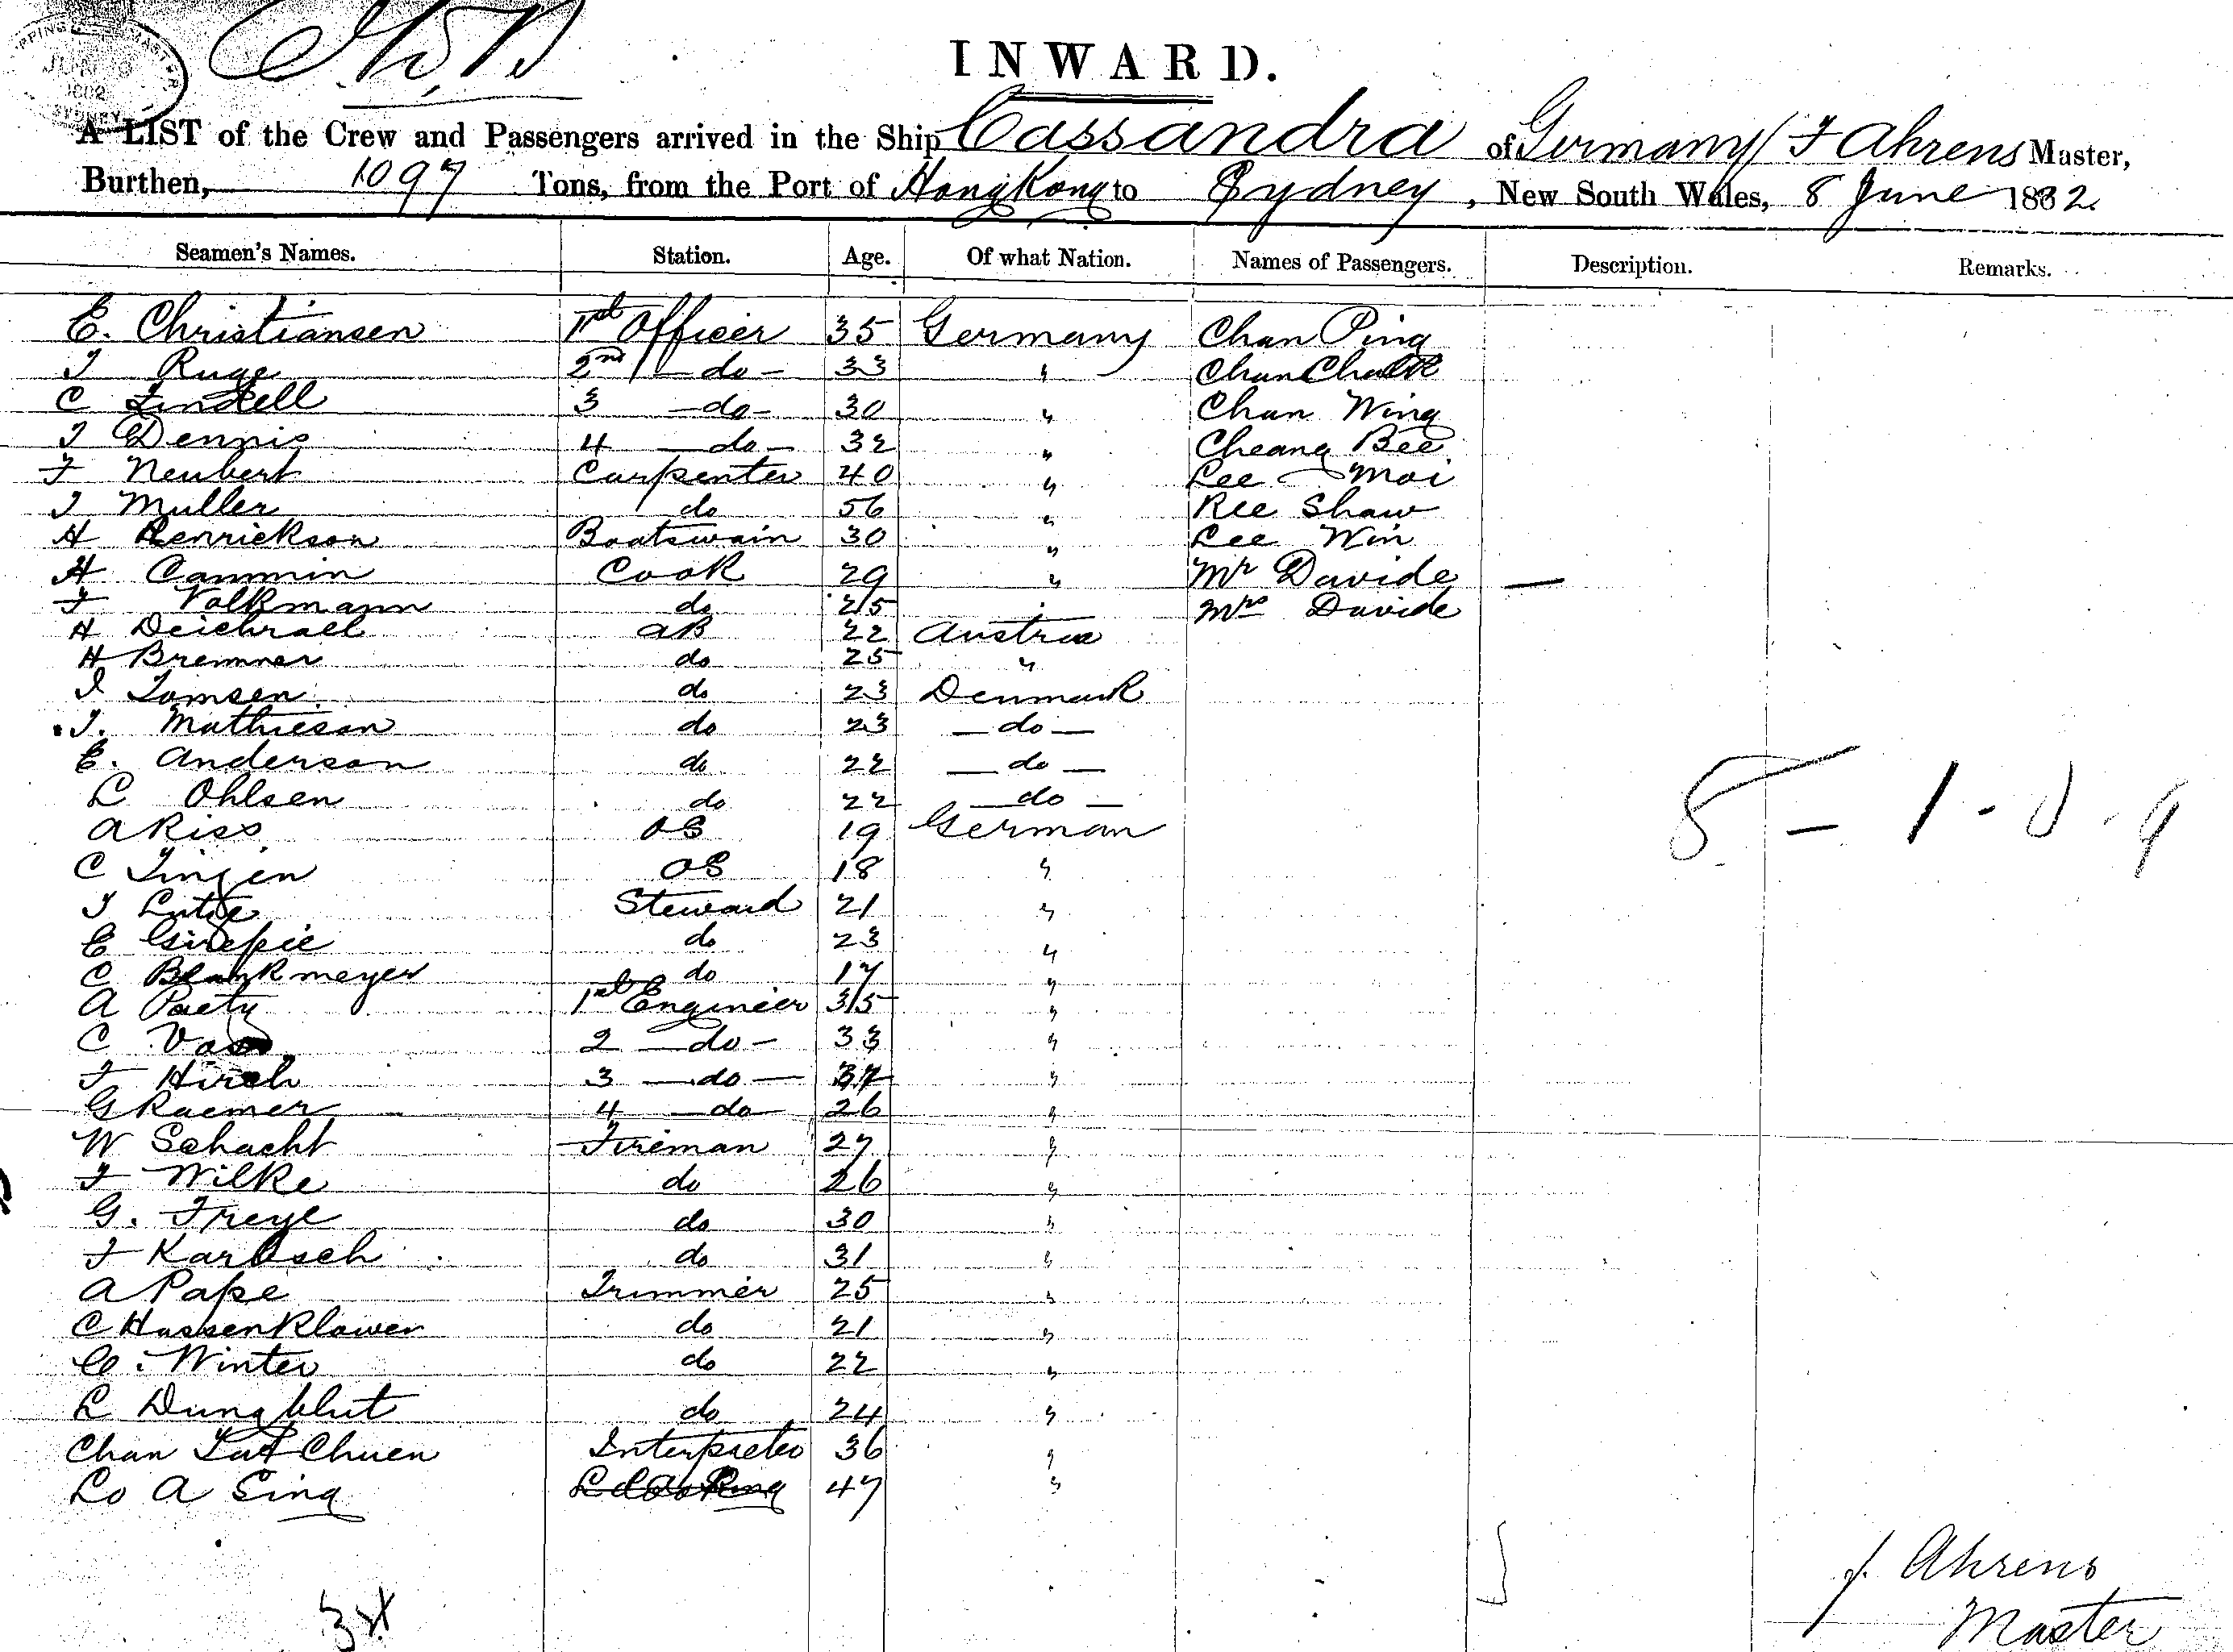 INWARD.
A LIST of the Crew and Passengers arrived in the Ship Cassandra of Germany F Ahrens Master,
Burthen, 1097 Tons, from the Port of HongKong to Sydney, New South Wales, 8 June 1882.
Seamen's Names. Station. Age. Of what Nation. Names of Passengers. Description. Remarks.
E. Christiansen 1st Officer 35 Germany Chan Ping
Ruge 2nd do 33 " Chan
C 3 do 30 " Chan Wing
Dennis 4 do 32 " Cheang Bee
F Neubert Carpenter 40 " Lee Moi
Muller do 56 " Ree Shaw
H Henrickson Boatswain 30 " Lee Win
H Cammin Cook 29 " Mr Davide —
F Volkmann do 25 Mrs Davide
H AB 22 Austria
H Bremner do 25 "
Tomsen do 23 Denmark
Mathieson do 23 — do —
E. Anderson do 22 — do —
L Ohlsen do 22 — do —
A Riss OS 19 German
C OS 18 "
Steward 21 "
E do 23 "
C Blankmeyer do 17 "
A 1st Engineer 35 "
C 2 do 33 "
F Hirsch 3 do "
G Raemer 4 do 26 "
W Schacht Fireman 27 "
F Wilke do 26 "
G. Freye do 30 "
F do 31 "
A Pape Trimmer 25 "
C Hassenklower do 21 "
Winter do 22 "
L do 24 "
Chan Chuen Interpreter 36 "
Lo A Sing 47 "
Ahrens
Master